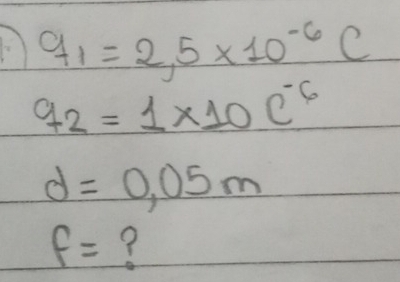 q₁ = 2,5 × 10⁻⁶ C
q₂ = 1 × 10 C⁻⁶
d = 0,05 m
f = ?